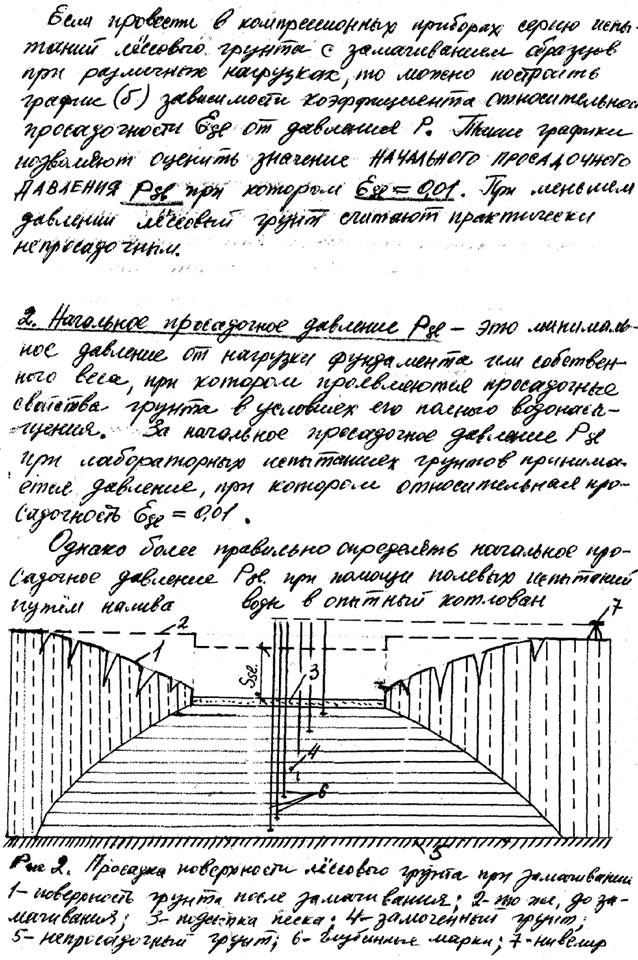 Если провести в компрессионных приборах серию испы-
таний лёссового грунта с замачиванием образцов
при различных нагрузках, то можно построить
график (б) зависимости коэффициента относительной
просадочности Esl от давления P. Такие графики
позволяют оценить значение НАЧАЛЬНОГО ПРОСАДОЧНОГО
ДАВЛЕНИЯ Psl при котором Esl = 0,01. При меньшем
давлении лёссовый грунт считают практически
непросадочным.
2. Начальное просадочное давление Psl – это минималь-
ное давление от нагрузки фундамента или собствен-
ного веса, при котором проявляются просадочные
свойства грунта в условиях его полного водонасы-
щения. За начальное просадочное давление Psl
при лабораторных испытаниях грунтов принима-
ется давление, при котором относительная про-
садочность Esl = 0,01.
Однако более правильно определять начальное про-
садочное давление Psl. при помощи полевых испытаний
путём налива воды в опытный котлован
7
2
1
Ssl.
3
4
6
5
Рис 2. Просадка поверхности лёссового грунта при замачивании
1- поверность грунта после замачивания; 2- то же, до за-
мачивания; 3- подсыпка песка; 4- замоченный грунт;
5- непросадочный грунт; 6- глубинные марки; 7- нивелир